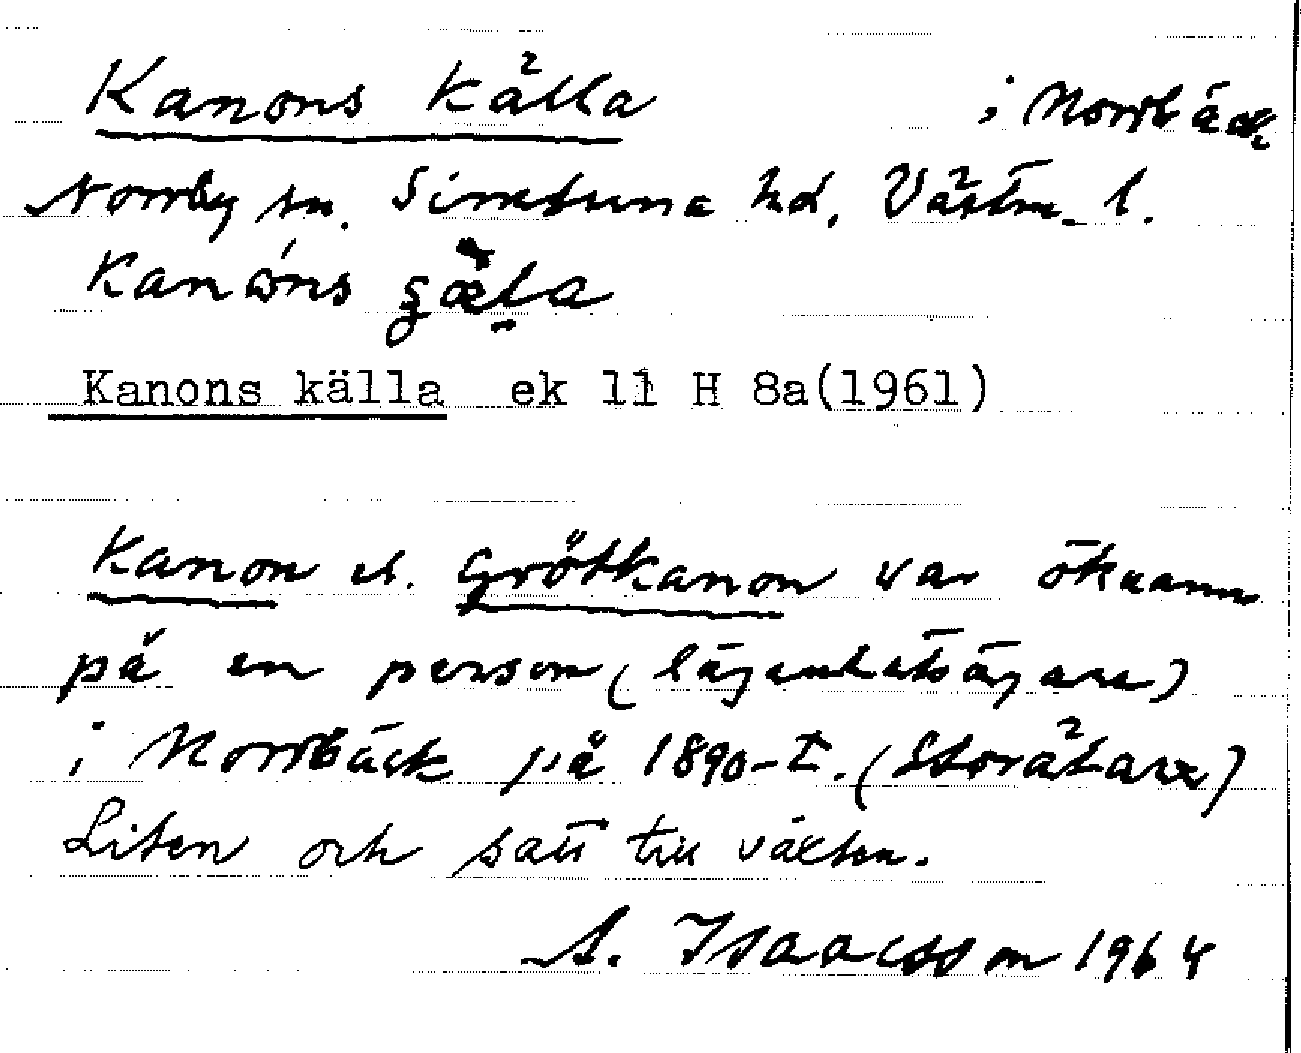 Kanons källa i Norrbäck
Norrby sn. Simtuna hd. Västm. l.
Kanons källa ek 11 H 8a(1961)
Kanon el. Grötkanon var öknamn
på en person (lägenhetsägare)
i Norrbäck på 1890-t. (Storätare)
Liten och satt till växten.
A. Isaacsson 1964